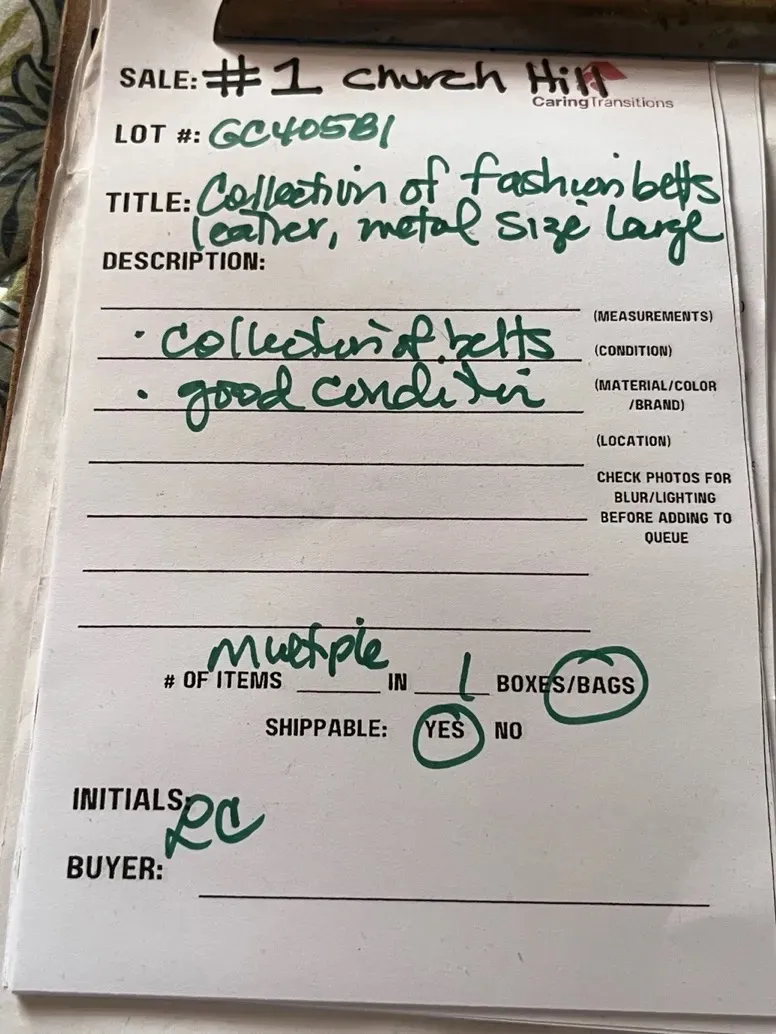 SALE: #1 Church Hill
CaringTransitions
LOT #: GC405B1
TITLE: Collection of fashion belts
leather, metal size Large
DESCRIPTION:
(MEASUREMENTS)
• collection of belts (CONDITION)
• good condition (MATERIAL/COLOR
/BRAND)
(LOCATION)
CHECK PHOTOS FOR
BLUR/LIGHTING
BEFORE ADDING TO
QUEUE
# OF ITEMS multiple IN 1 BOXES/BAGS
SHIPPABLE: YES NO
INITIALS: RC
BUYER: